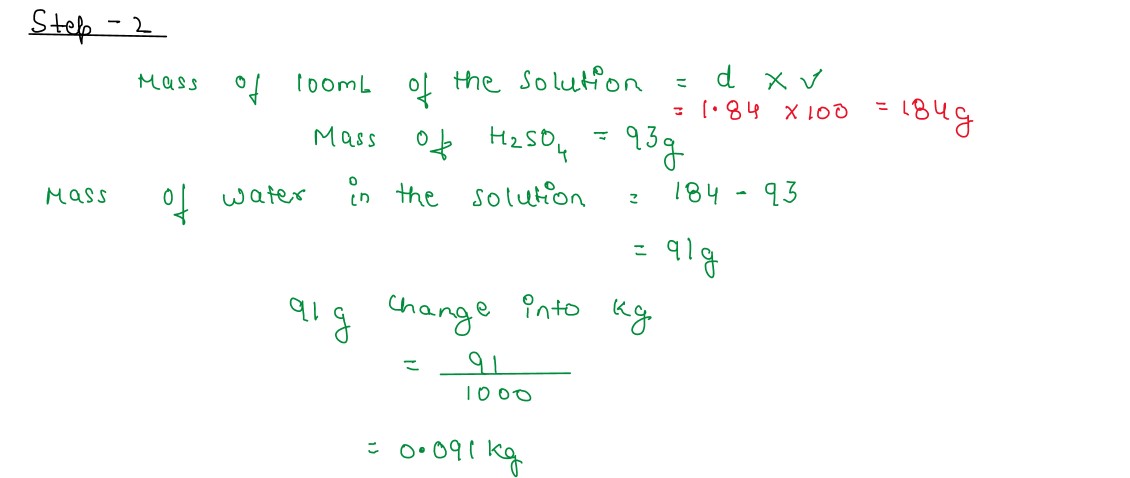 Step - 2
Mass of 100mL of the solution = d × v
= 1.84 × 100 = 184g
Mass of H₂SO₄ = 93g
Mass of water in the solution = 184 - 93
= 91g
91 g change into kg
= 91
1000
= 0.091 kg